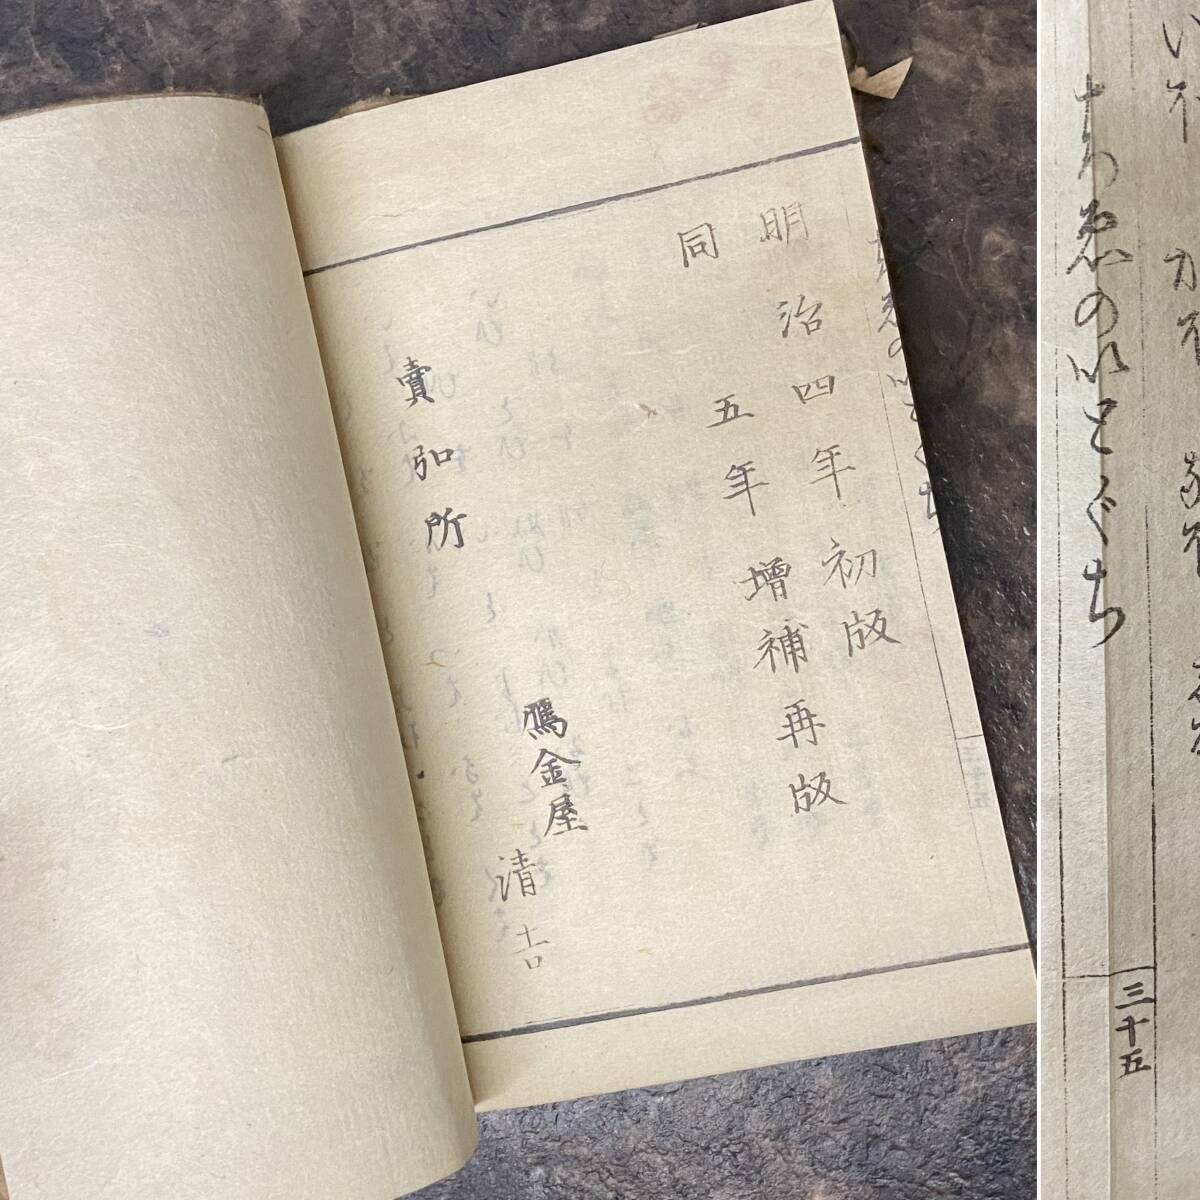 明治四年初版
同五年増補再版
賣弘所
鴈金屋清吉
ちゑのいとぐち
三十五